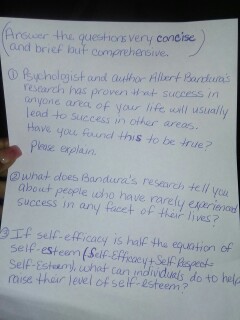 (Answer the questions very concise
and brief but comprehensive.)
① Psychologist and author Albert Bandura's
research has proven that success in
anyone area of your life will usually
lead to success in other areas.
Have you found this to be true?
Please explain.
② What does Bandura's research tell you
about people who have rarely experienced
success in any facet of their lives?
③ If self-efficacy is half the equation of
self-esteem (Self-Efficacy + Self Respect =
Self-Esteem), what can individuals do to help
raise their level of self-esteem?